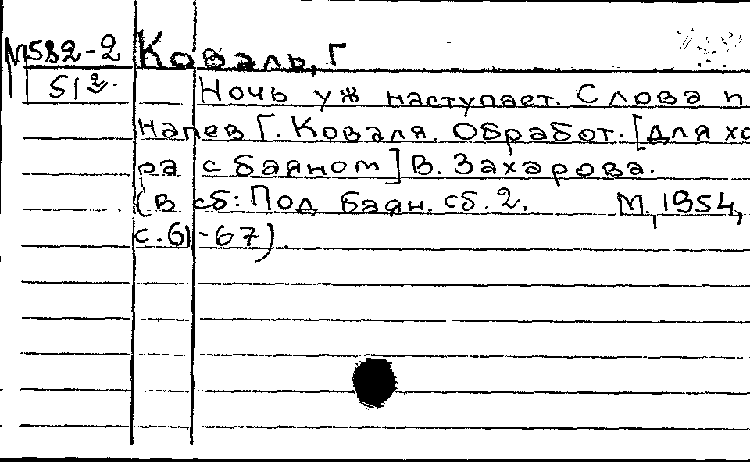 М582-2 Коваль, Г
51г. Ночь уж наступает. Слова п
напев Г. Коваля. Обработ. [для хо
ра с баяном] В. Захарова.
(В сб: Под баян. сб. 2. М, 1954,
с. 61-67).